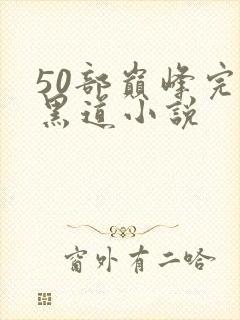 50部巅峰完
黑道小说
窗外有二哈